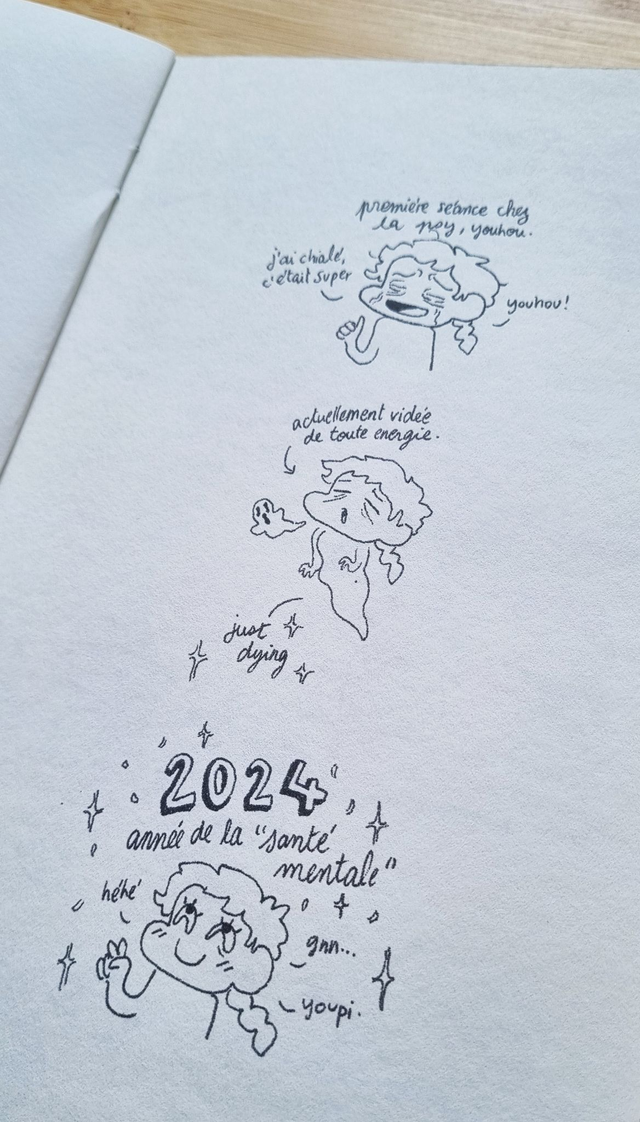 première séance chez
la psy, youhou.
j'ai chialé,
c'était super
youhou!
actuellement vidée
de toute energie.
just
dying
2024
année de la "santé
mentale"
héhé
gnn...
youpi.